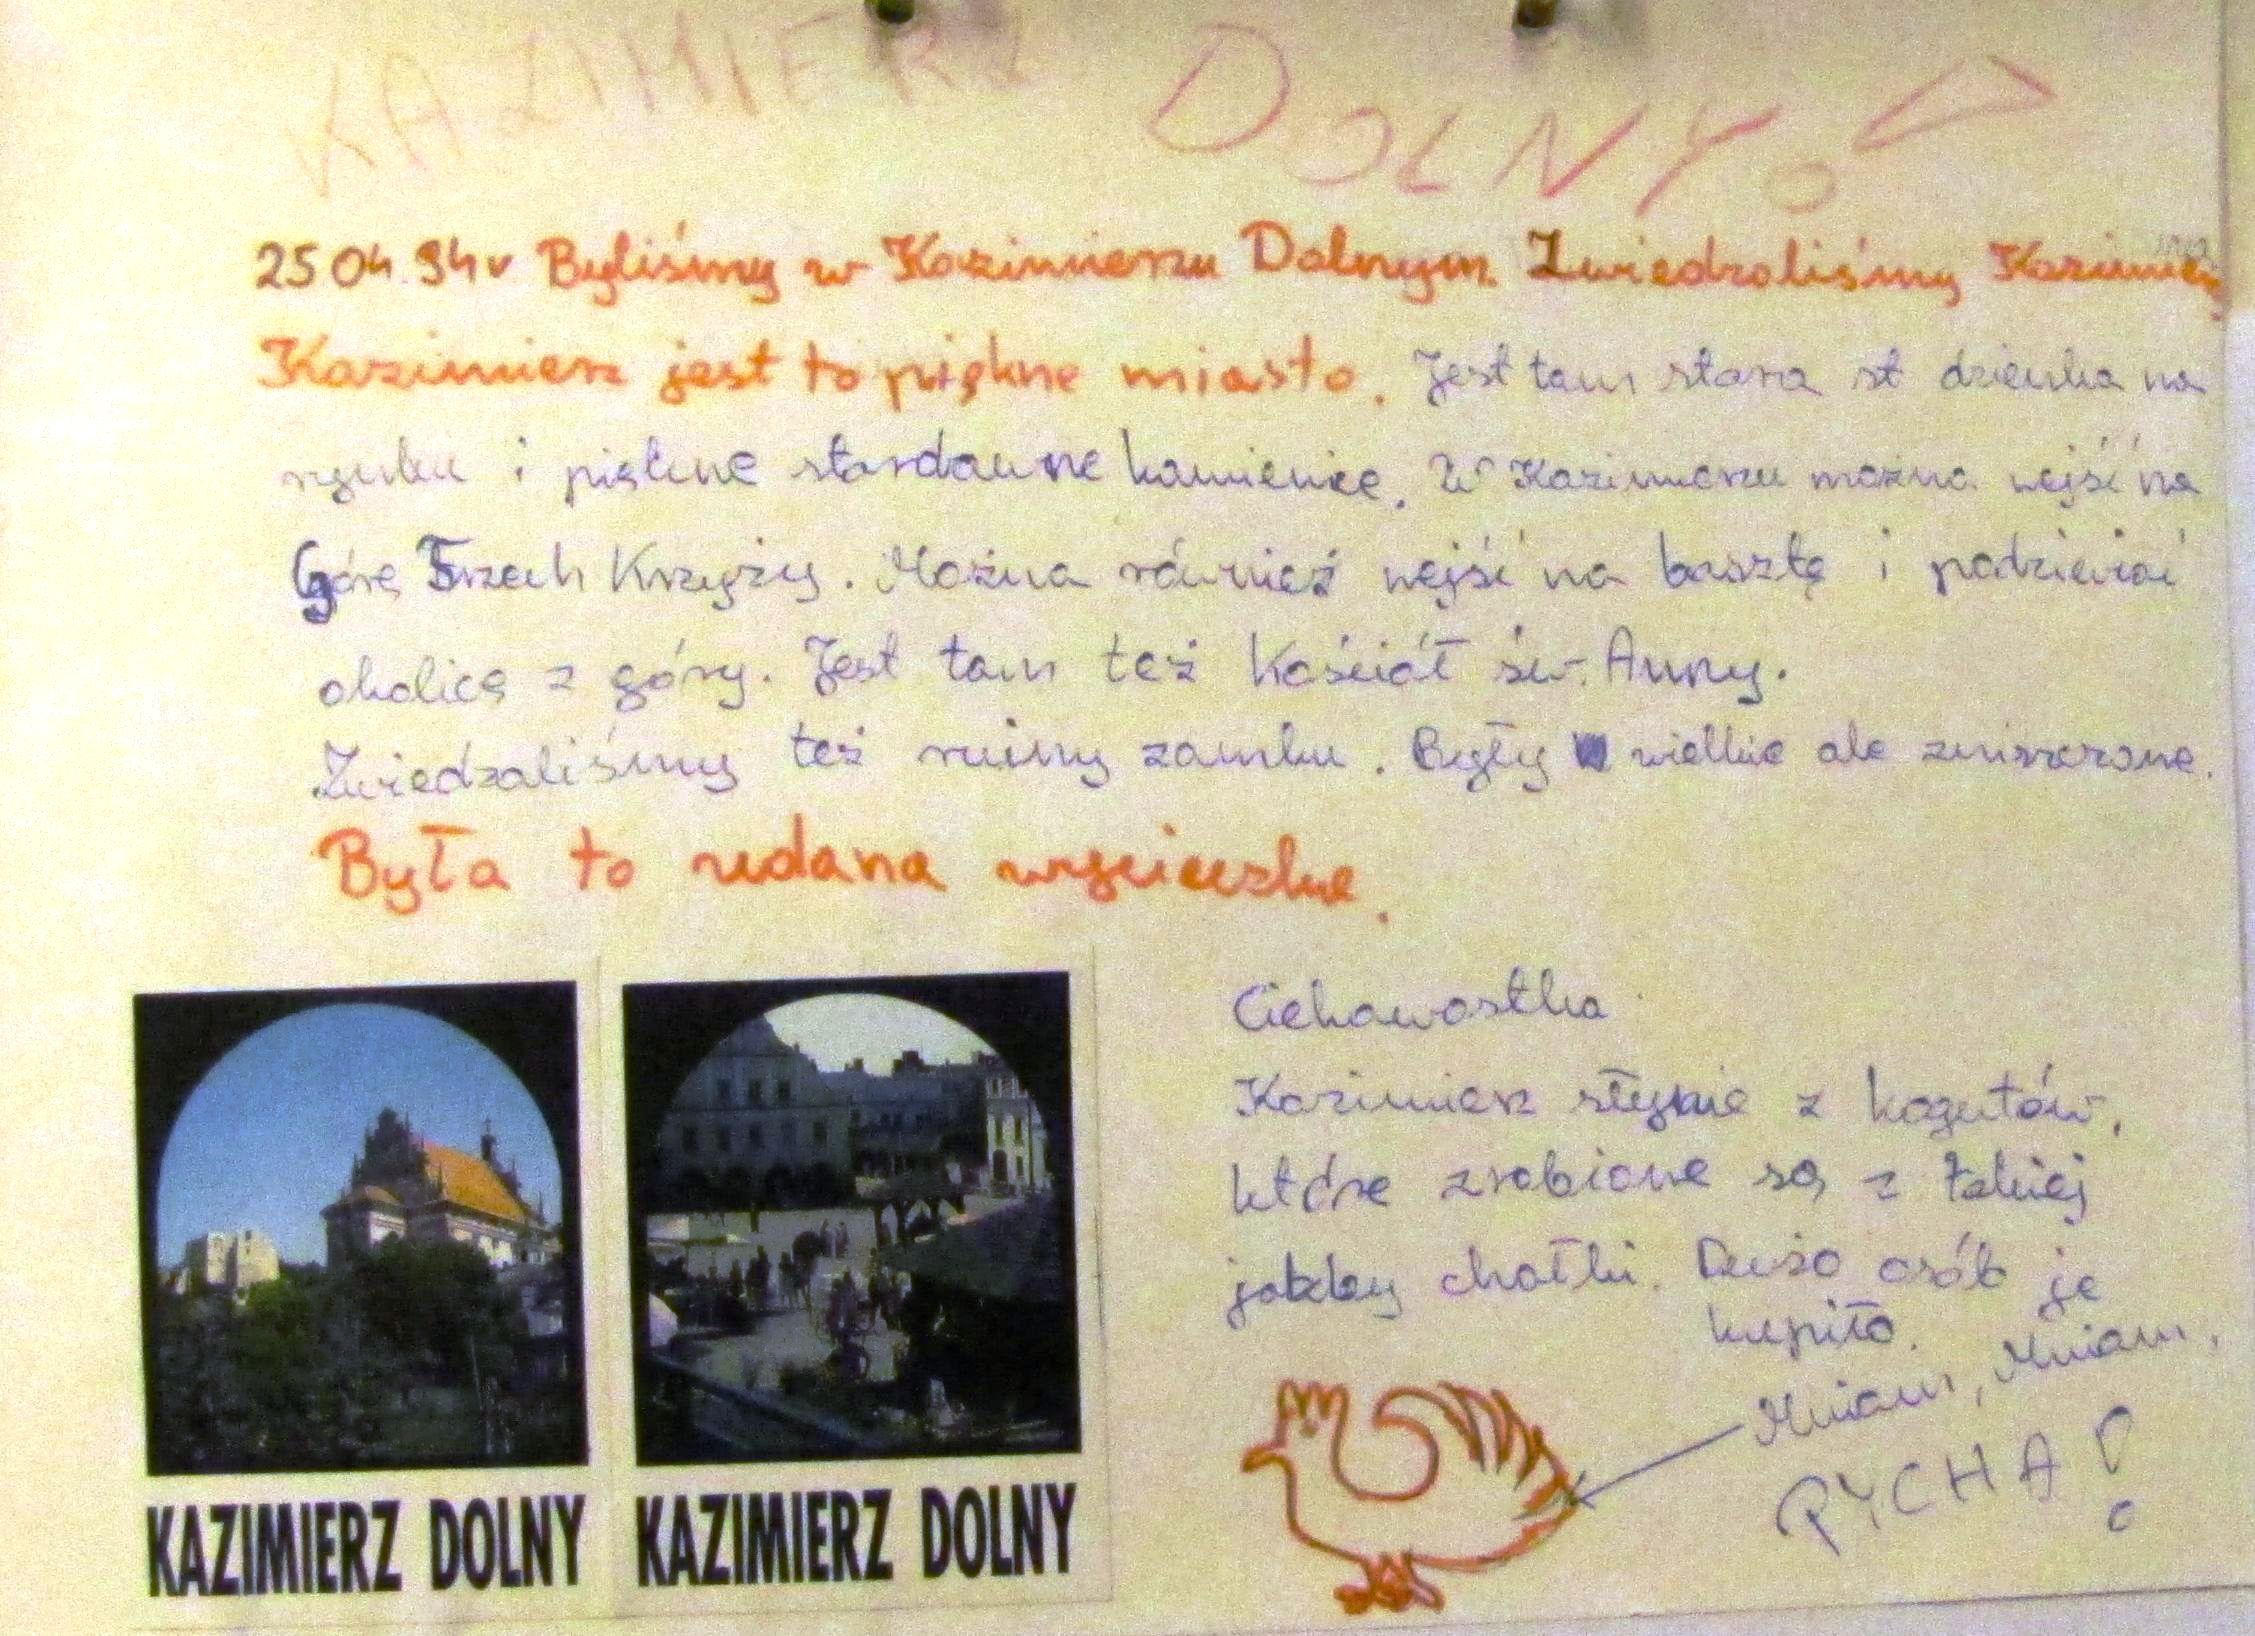 KAZIMIERZ DOLNY!
25.04.94r Byliśmy w Kazimierzu Dolnym. Zwiedzaliśmy Kazimierz
Kazimierz jest to piękne miasto. Jest tam stara st dzienka na
rynku i piękne stardawne kamienice. W Kazimierzu można wejść na
Górę Trzech Krzyży. Można również wejść na basztę i podziwiać
okolicę z góry. Jest tam też Kościół św. Anny.
Zwiedzaliśmy też ruiny zamku. Były wielkie ale zniszczone.
Była to udana wycieczka.
Ciekawostka
Kazimierz słynie z kogutów,
które zrobione są z takiej
jakby chałki. Dużo osób je
kupiło.
Mniam, Mniam,
PYCHA!
KAZIMIERZ DOLNY
KAZIMIERZ DOLNY